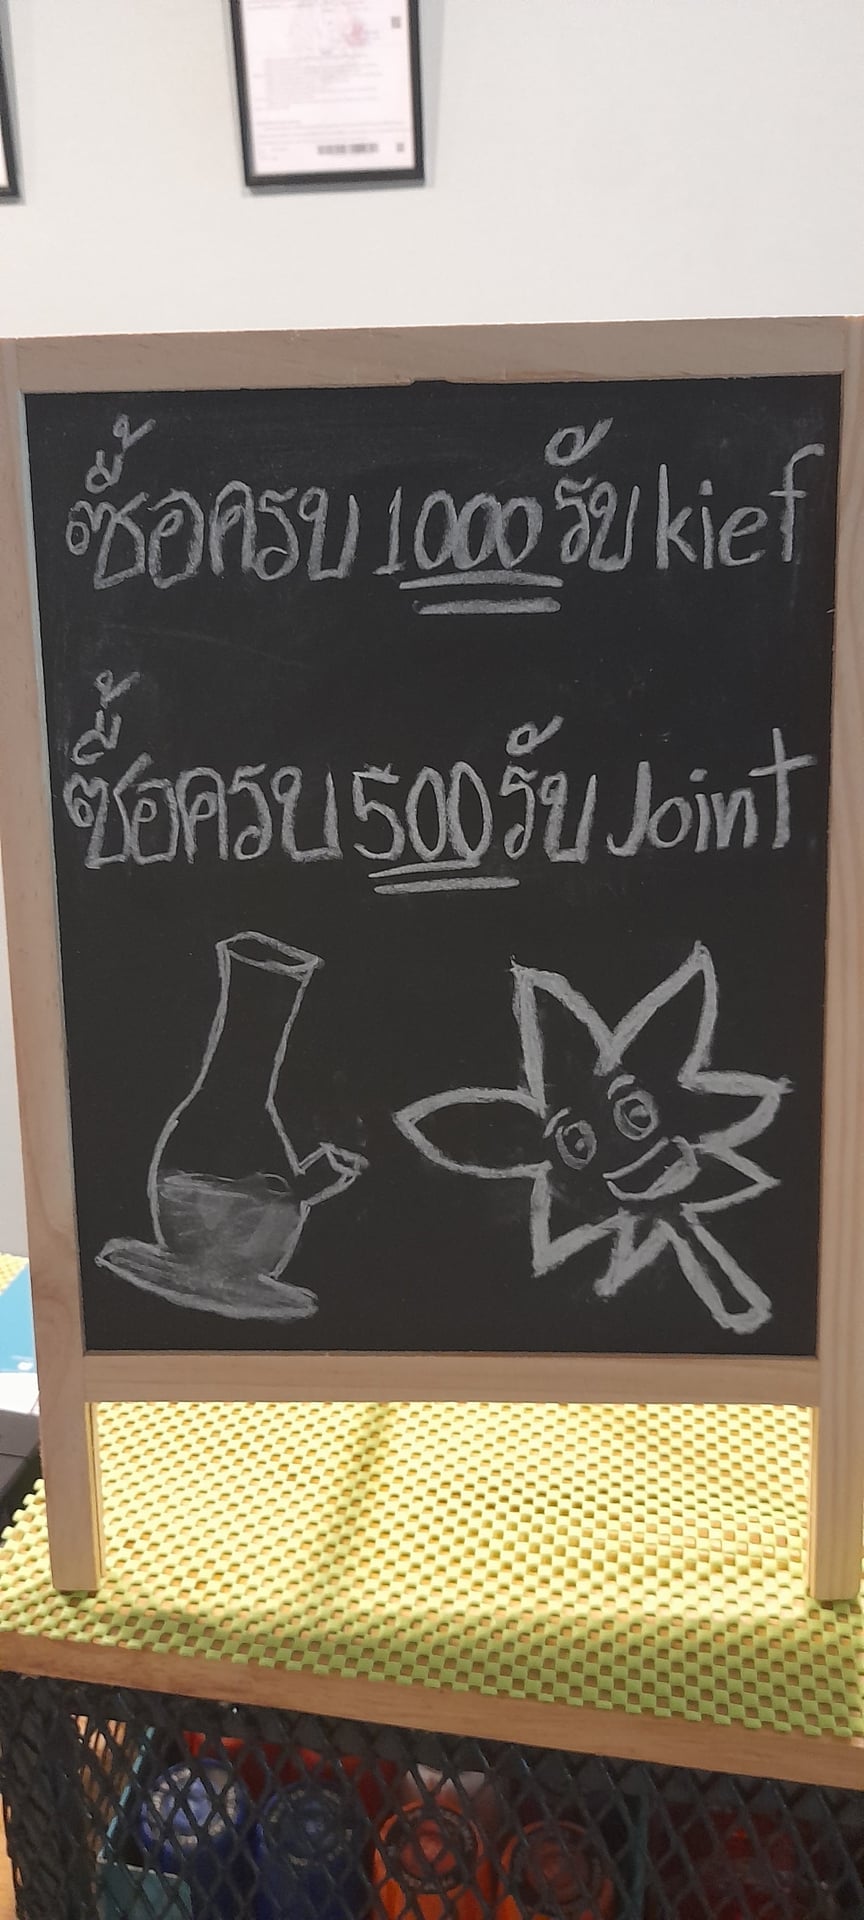 ซื้อครบ 1000 รับ kief
ซื้อครบ 500 รับ Joint